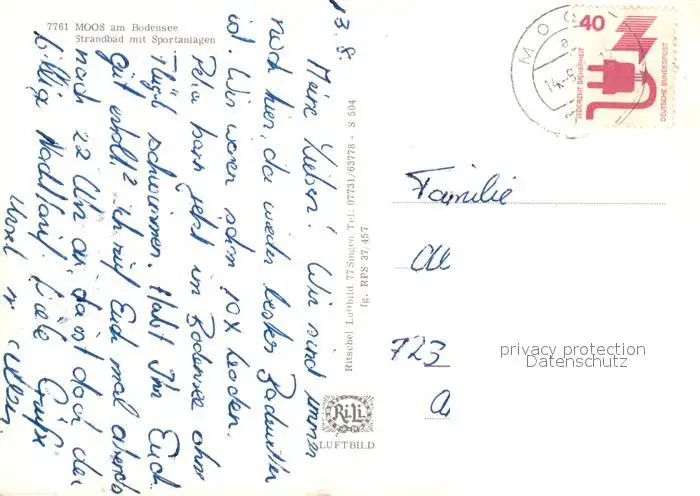 7761 MOOS am Bodensee
Strandbad mit Sportanlagen
13.8.
Meine Lieben! Wir sind immer
noch hier, da weiter bestes Badewetter
ist. Wir waren schon 10x baden.
Petra kann jetzt im Bodensee ohne
Flügel schwimmen. Habt Ihr Euch
gut erholt? Ich ruf Euch mal abends
nach 22 Uhr an, da ist doch der
billige Nachttarif. Liebe Grüße
Ritschel Luftbild 77 Singen Tel. 07731/63778 - S 504
fg. RPS 37/457
RiLi
LUFTBILD
MOOS
14.-8.
40
JEDERZEIT SICHERHEIT
DEUTSCHE BUNDESPOST
Familie
723
privacy protection
Datenschutz